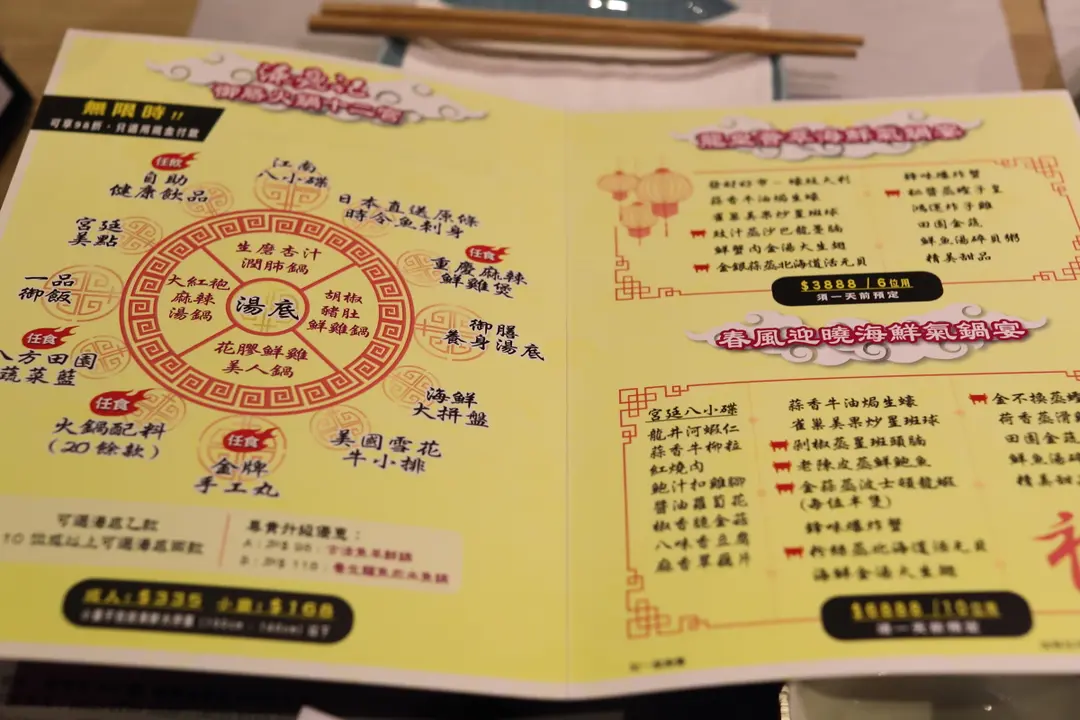 御膳火鍋十二宮
無限時!!
可享98折，只適用現金付款
任飲
自助
健康飲品
江南
八小碟
日本直送原條
時令魚刺身
任食
重慶麻辣
鮮雞煲
御膳
養身湯底
海鮮
大拼盤
美國雪花
牛小排
任食
金牌
手工丸
任食
火鍋配料
(20餘款)
任食
八方田園
蔬菜籃
一品
御飯
宮廷
美點
生磨杏汁
潤肺鍋
胡椒
豬肚
鮮雞鍋
花膠鮮雞
美人鍋
大紅袍
麻辣
湯鍋
湯底
可選湯底乙款
10位或以上可選湯底兩款
尊貴升級優惠：
成人:$335 小童:$168
龍皇薈萃海鮮氣鍋宴
發財好市-蠔豉大利
蒜香牛油焗生蠔
雀巢美果炒星班球
豉汁蒸沙巴龍躉腩
鮮蟹肉金湯大生翅
金銀蒜蒸北海道活元貝
鋒味爆炸蟹
秘醬蒸蟶子皇
鴻運炸子雞
田園金菇
鮮魚湯碎貝粥
精美甜品
$3888 /6位用
須一天前預定
春風迎曉海鮮氣鍋宴
宮廷八小碟
龍井河蝦仁
蒜香牛柳拉
紅燒肉
鮑汁扣雞腳
醬油蘿蔔花
椒香脆金菇
八味香豆腐
麻香草菇片
蒜香牛油焗生蠔
雀巢美果炒星班球
剁椒蒸星班頭腩
老陳皮蒸鮮鮑魚
金蒜蒸波士頓龍蝦
(每位半隻)
鋒味爆炸蟹
粉絲蒸北海道活元貝
海鮮金湯大生翅
金不換蒸
荷香蒸滑
田園金菇
鮮魚湯碎
精美甜品
$6888 /10位用
須一天前預定